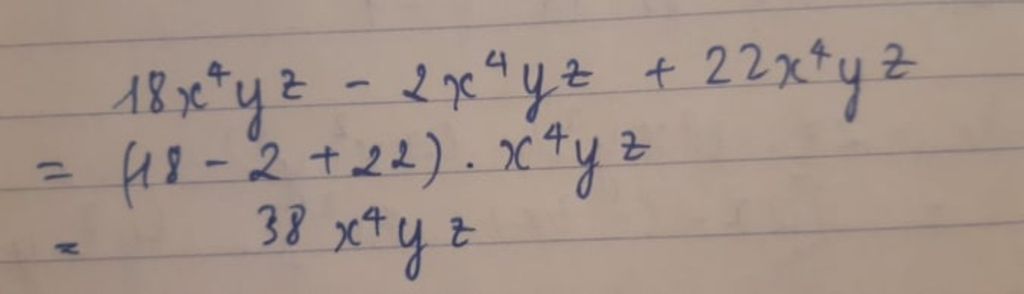 18x⁴yz - 2x⁴yz + 22x⁴yz
= (18 - 2 + 22) . x⁴yz
= 38 x⁴yz